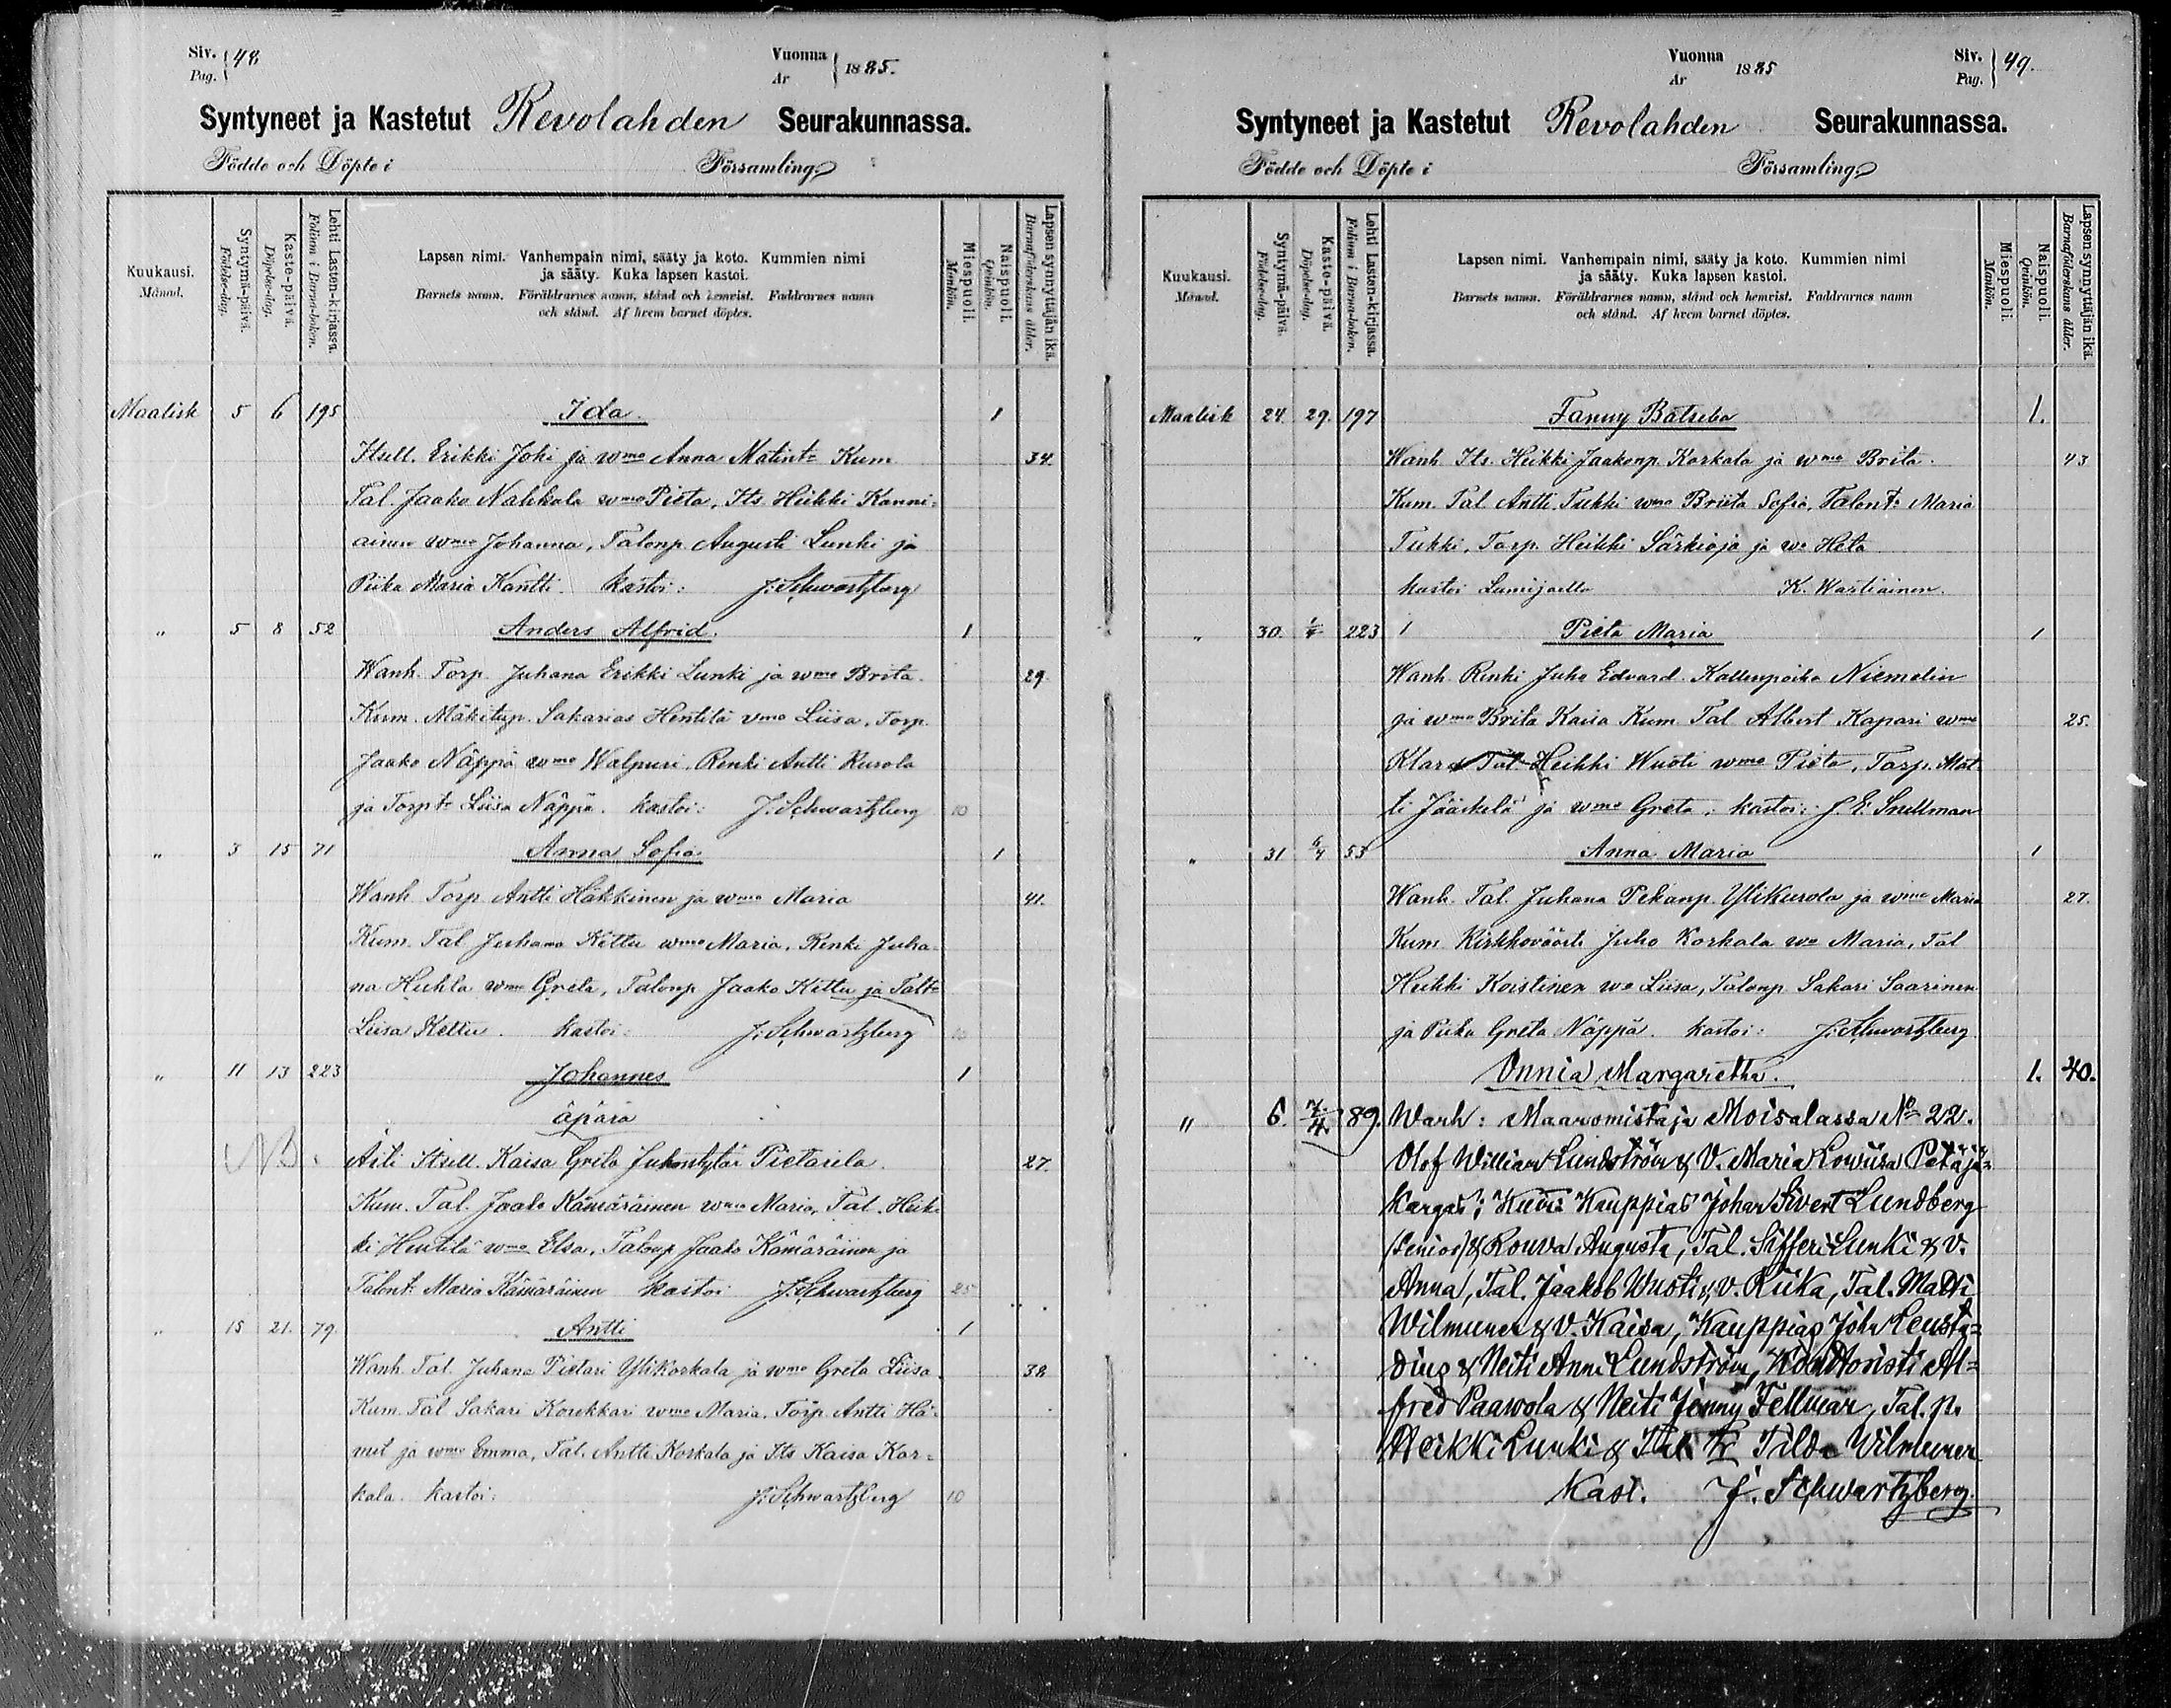 Siv. 48
Pag.
Vuonna 1885.
År
Syntyneet ja Kastetut Revolahden Seurakunnassa.
Födde och Döpte i Församling
Kuukausi.
Månad.
Syntymä-päivä.
Födelse-dag.
Kaste-päivä.
Döpelse-dag.
Lehti Lasten-kirjassa.
Folium i Barna-boken.
Lapsen nimi. Vanhempain nimi, sääty ja koto. Kummien nimi
ja sääty. Kuka lapsen kastoi.
Barnets namn. Föräldrarnes namn, stånd och hemvist. Faddrarnes namn
och stånd. Af hvem barnet döptes.
Miespuoli.
Mankön.
Naispuoli.
Qvinkön.
Lapsen synnyttäjän ikä.
Barnaföderskans ålder.
Maalisk 5 6 195 Ida. 1
Itsell. Erikki Joki ja wmo Anna Matint: Kum 34.
Tal. Jaako Nahkala wmo Pieta, Its. Heikki Kanni=
ainen wmo Johanna, Talonp. Augusti Lunki ja
Piika Maria Kantti. kastoi: J. Schwartzberg
" 5 8 52 Anders Alfrid. 1
Wanh. Torp. Juhana Erikki Lunki ja wmo Brita. 29.
Kum. Mäkitup. Sakarias Hentilä vmo Liisa, Torp.
Jaako Näppä wmo Walpuri, Renki Antti Kurola
ja Torpt: Liisa Näppä. kastoi: J. Schwartzberg 10
" 3 15 71 Anna Sofia 1
Wanh Torp Antti Häkkinen ja wmo Maria 41.
Kum. Tal Juhana Kettu wmo Maria, Renki Juha=
na Huhla wmo Greta, Talonp Jaako Kettu ja Talt:
Liisa Kettu. kastoi: J. Schwartzberg 10
" 11 13 223 Johannes 1
äpärä
NB. Äiti Itsell. Kaisa Greta Juhontytär Pietarila. 27
Kum. Tal. Jaako Kämäräinen wmo Maria, Tal. Heik=
ki Hentilä wmo Elsa, Talonp Jaako Kämäräinen ja
Talont. Maria Kämäräinen kastoi J. Schwartzberg 25
" 15 21. 79. Antti 1
Wanh. Tal. Juhana Pietari Ylikorkala ja wmo Greta Liisa. 38
Kum. Tal Sakari Koukkari wmo Maria. Torp. Antti Hä=
met ja wmo Emma, Tal. Antti Korkala ja Its Kaisa Kor=
kala. kastoi: J. Schwartzberg 10
Vuonna 1885
År
Siv. 49.
Pag.
Syntyneet ja Kastetut Revolahden Seurakunnassa.
Födde och Döpte i Församling
Kuukausi.
Månad.
Syntymä-päivä.
Födelse-dag.
Kaste-päivä.
Döpelse-dag.
Lehti Lasten-kirjassa.
Folium i Barna-boken.
Lapsen nimi. Vanhempain nimi, sääty ja koto. Kummien nimi
ja sääty. Kuka lapsen kastoi.
Barnets namn. Föräldrarnes namn, stånd och hemvist. Faddrarnes namn
och stånd. Af hvem barnet döptes.
Miespuoli.
Mankön.
Naispuoli.
Qvinkön.
Lapsen synnyttäjän ikä.
Barnaföderskans ålder.
Maalisk 24. 29. 197 Fanny Batseba 1.
Wanh Its. Heikki Jaakonp. Korkala ja wmo Brita. 43
Kum. Tal Antti Tukki wmo Briita Sofia, Talont: Maria
Tukki, Torp. Heikki Särkioja ja wo Heta
kastoi Lumijoella K. Wartiainen.
" 30. 1/4 223 1 Pieta Maria 1
Wanh. Renki Juho Edvard Kallenpoika Niemelin
ja wmo Brita Kaisa Kum Tal Albert Kapari wmo 25.
Klara Tal. Heikki Wuoti wmo Pieta, Torp. Mat=
ti Jääskelä ja wmo Greta, kastoi: J. E. Snellman
" 31 6/4 55 Anna Maria 1
Wanh. Tal. Juhana Pekanp. Ylikurola ja wmo Maria 27.
Kum. Kirkkoväärti Juho Korkala wo Maria, Tal
Heikki Koistinen wo Liisa, Talonp Sakari Saarinen
ja Piika Greta Näppä. kastoi: J. Schwartzberg
Onnia Margaretha. 1. 40.
" 6. 7./4. 89. Wanh: Maanomistaja Moisalassa No 22.
Olof William Lundström & V. Maria Lowiisa Petäjä=
kangas; Kum: Kauppias Johan Sivert Lundberg
(senior) & Rouva Augusta, Tal. Sifferi Lunki & v.
Anna, Tal. Jaakob Wuoti & v. Riika, Tal. Matti
Wilmunen & v. Kaisa, Kauppias John Leusta=
dius & Neiti Anni Lundström, Konttoristi Al=
fred Paawola & Neiti Jenny Fellman, Tal. p.
Heikki Lunki & Tilda Wilmunen
Kast. J. Schwartzberg.